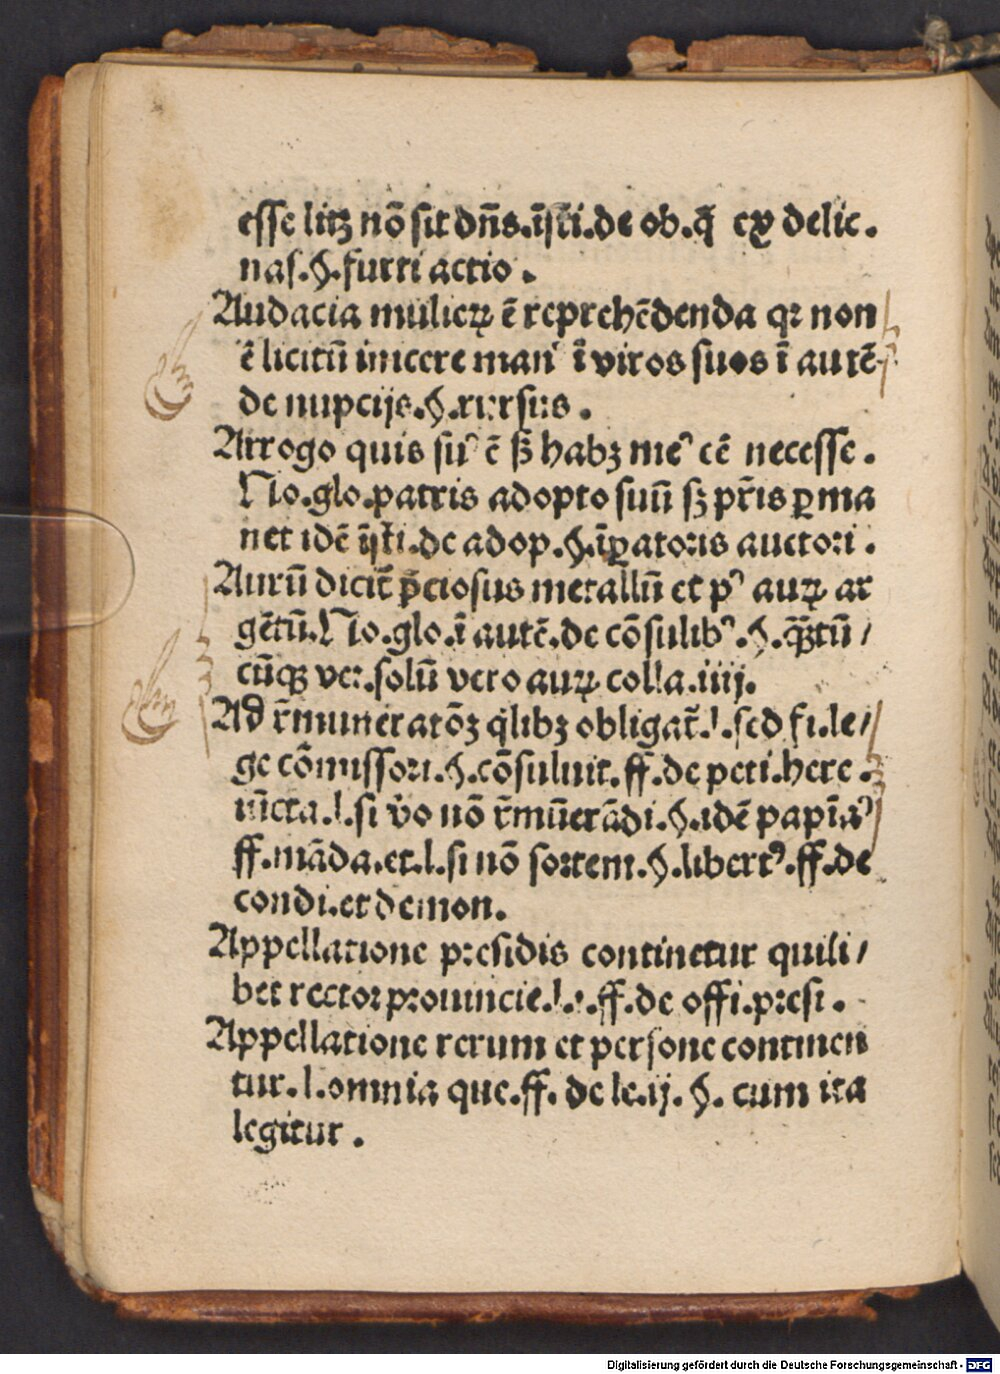 esse litꝫ nō sit dn̄s.īsti.de ob.q̄ ex delic.
nas.§.furti actio.
Audacia mulieꝝ ē reprehēdenda qꝛ non
ē licitū inicere man⁹ ī viros suos ī autē-
de nupcijs.§.rursus.
Arrogo quis su⁹ ē sꝫ habꝫ me⁹ eē necesse.
No.glo.patris adopto suū sꝫ pr̄is ꝑma
net idē īsti.de adop.§.īꝑatoris auctori.
Aurū dicit̄ p̄ciosus metallū et p⁹ auꝝ ar
gētū.No.glo.ī autē.de cōsulib⁹.§.q̄ꝫtū/
cūqꝫ ver.solū vero auꝝ colla.iiij.
Ad r̄muneratōꝫ q̄libꝫ obligat̄.l.sed si.le/
ge cōmissori.§.cōsuluit.ff.de peti.here.
iūcta.l.si v̄o nō r̄mūerādi.§.idē papīa⁹
ff.māda.et.l.si nō sortem.§.libert⁹.ff.de
condi.et demon.
Appellatione presidis continetur quili/
bet rector prouincie.l.i.ff.de offi.presi.
Appellatione rerum et persone continen
tur.l.omnia que.ff. de le.ij. §. cum ita
legitur.
Digitalisierung gefördert durch die Deutsche Forschungsgemeinschaft - DFG